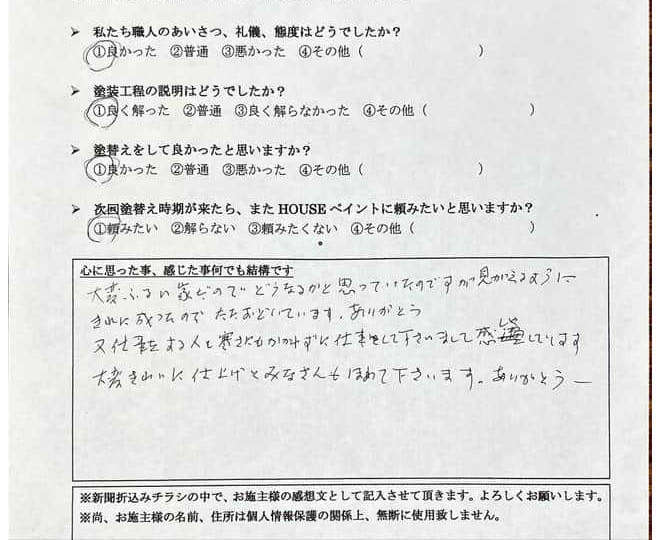 ➢ 私たち職人のあいさつ、礼儀、態度はどうでしたか？
①良かった ②普通 ③悪かった ④その他（ ）
➢ 塗装工程の説明はどうでしたか？
①良く解った ②普通 ③良く解らなかった ④その他（ ）
➢ 塗替えをして良かったと思いますか？
①良かった ②普通 ③悪かった ④その他（ ）
➢ 次回塗替え時期が来たら、また HOUSE ペイントに頼みたいと思いますか？
①頼みたい ②解らない ③頼みたくない ④その他（ ）
心に思った事、感じた事何でも結構です
大変ふるい家なのでどうなるかと思っていたのですが見かえるように
きれいに成ったのでただおどろいています。ありがとう
又仕事をする人も寒さにもかかわらずに仕事をして下さいまして感謝しています
大変きれいに仕上げとみなさんもほめて下さいます。ありがとうー
※新聞折込みチラシの中で、お施主様の感想文として記入させて頂きます。よろしくお願いします。
※尚、お施主様の名前、住所は個人情報保護の関係上、無断に使用致しません。